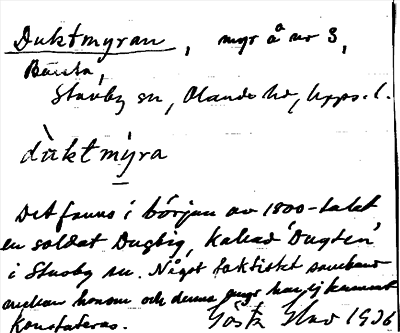 Duktmyran, myr å nr 3,
Bärsta,
Stavby sn, Olands hd, Upps. l.
dùktmýra
Det fanns i början av 1800-talet
en soldat Dugtig, kallad 'Dugten'
i Stavby sn. Något faktiskt samband
mellan honom och denna myr har ej kunnat
konstateras. Gösta 1936